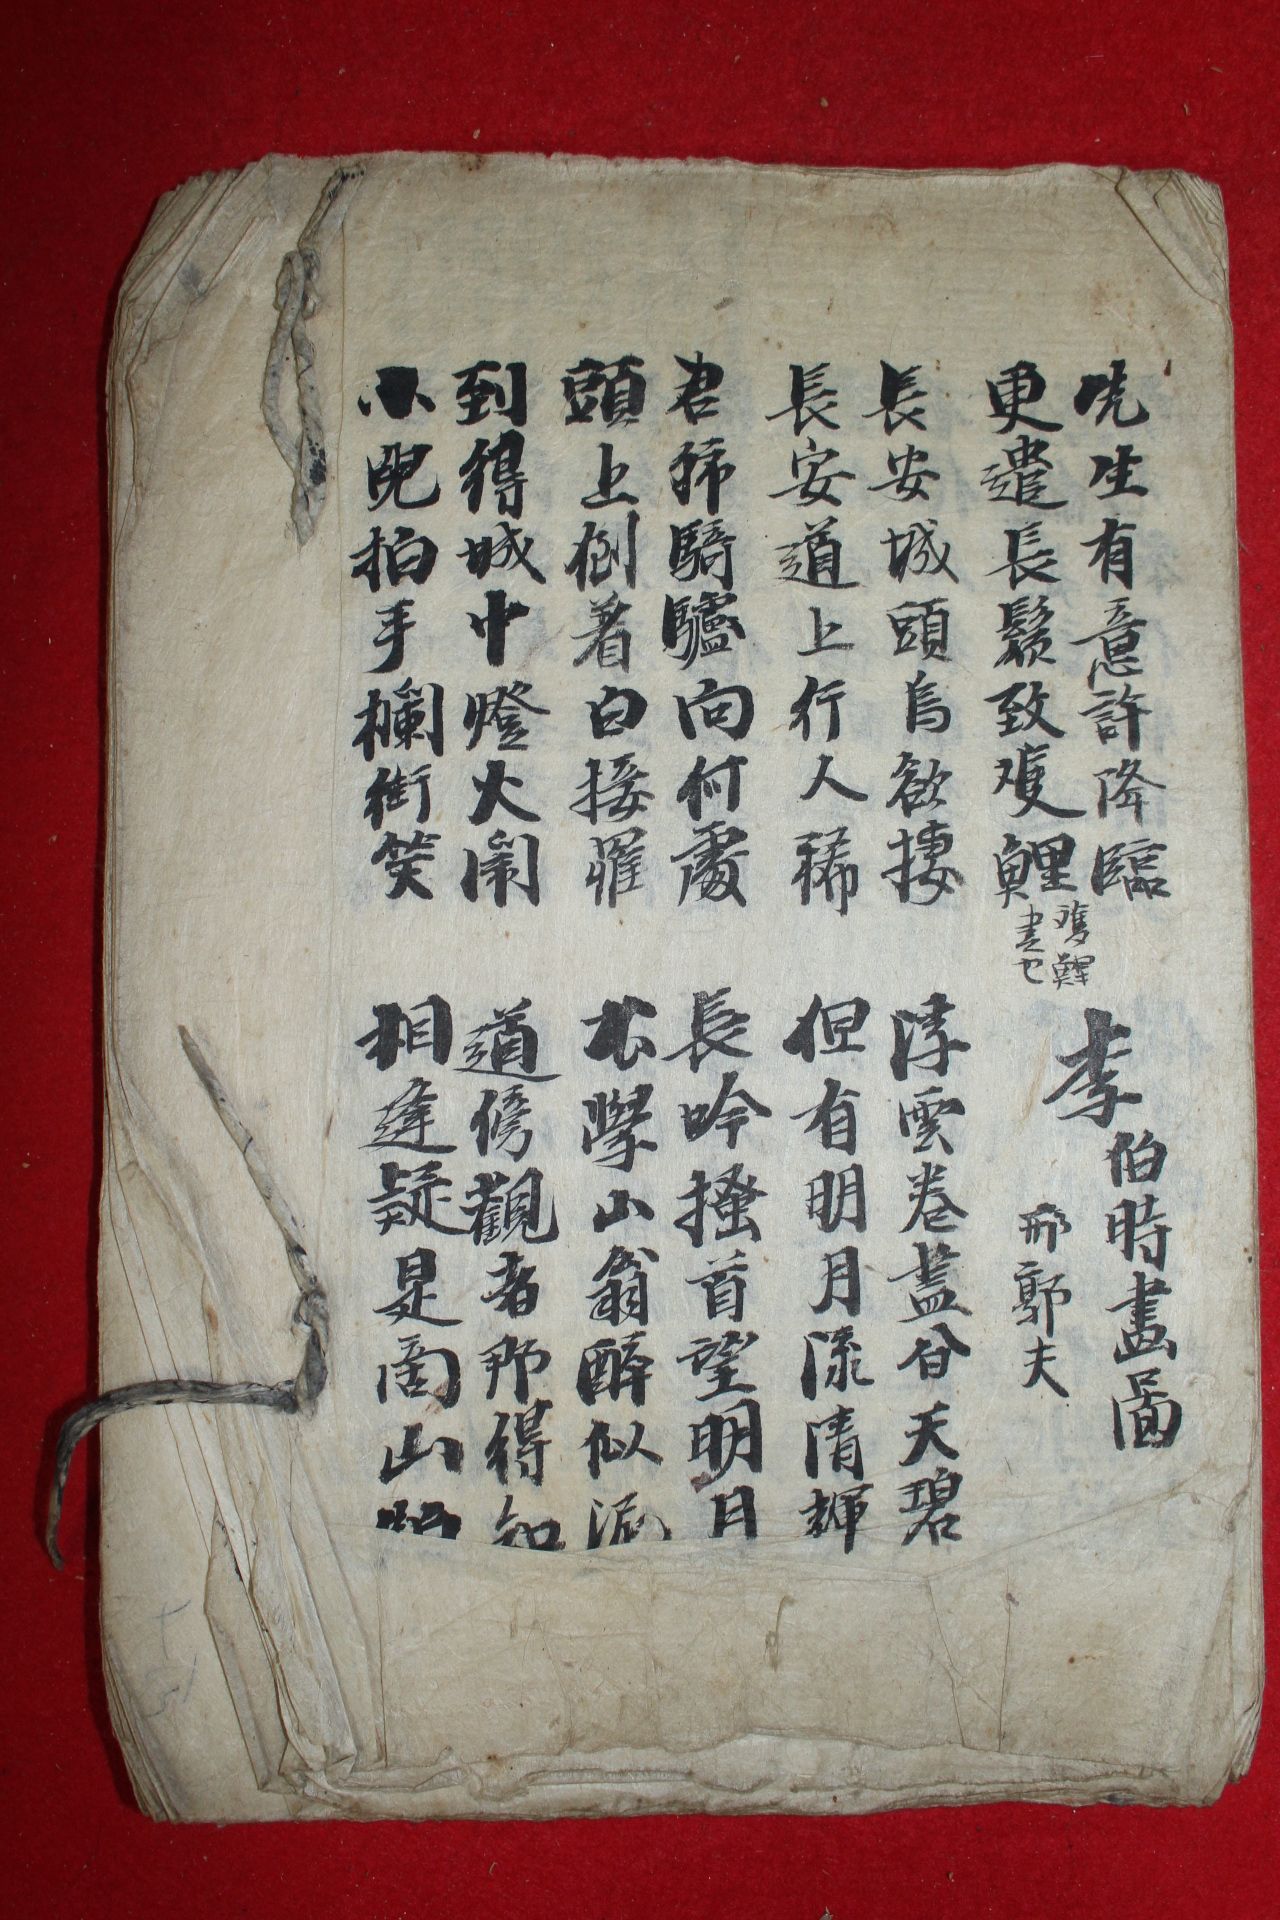 先生有意許降臨 李伯時畫圖
更遣長鬚致雙鯉 雙鯉書也 邢郭夫
長安城頭烏欲捿 浮雲卷盡暮天碧
長安道上行人稀 但有明月流清輝
君獨騎驢向何處 長吟搔首望明月
頭上倒着白接罹 不學山翁醉似泥
到得城中燈火鬧 道傍觀者那得知
小兒拍手欄街笑 相逢疑是商山皓